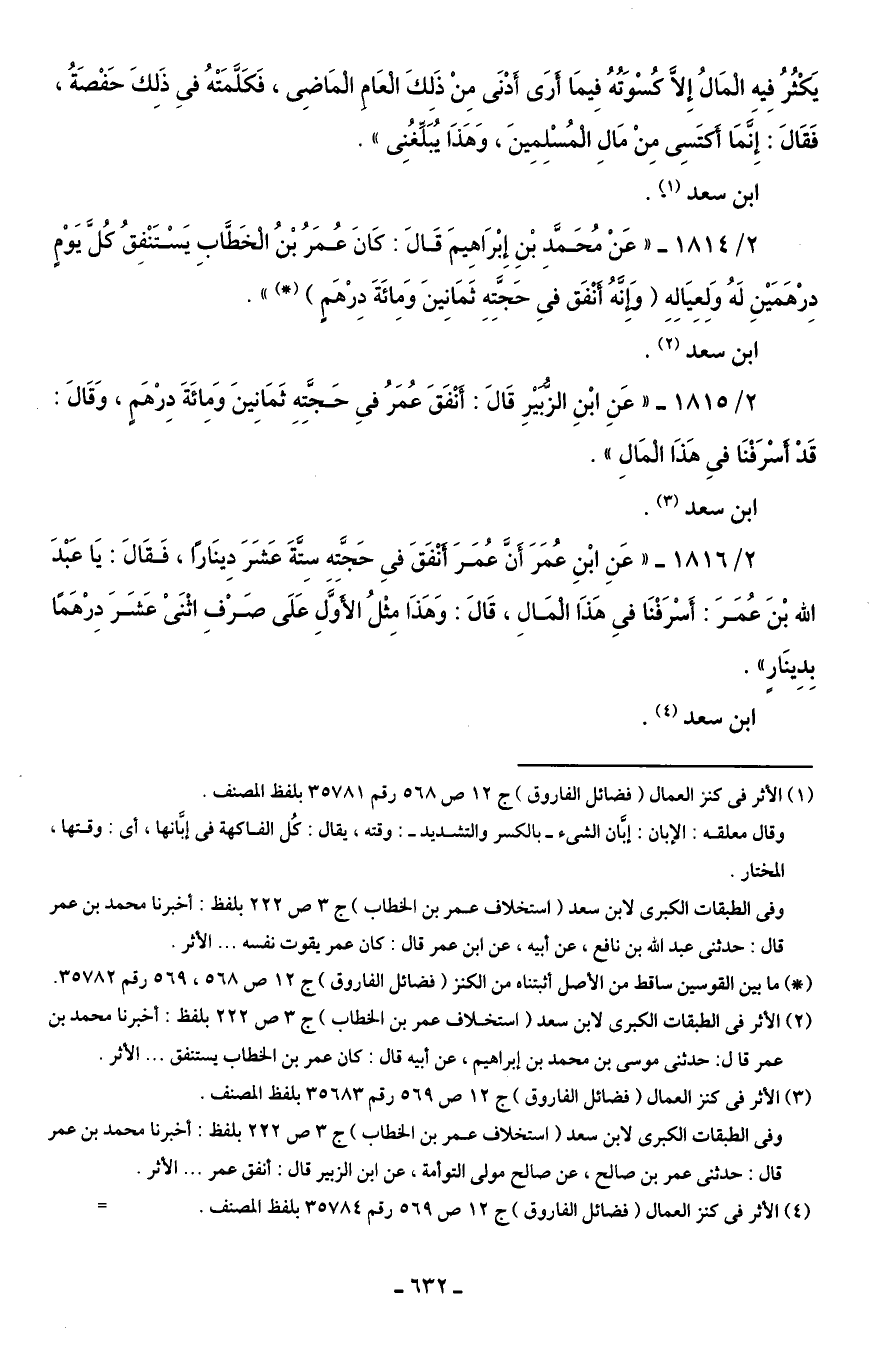 يَكْثُرُ فِيهِ الْمَالُ إِلاَّ كُسْوَتُهُ فِيمَا أَرَى أَدْنَى مِنْ ذَلِكَ الْعَامِ الْمَاضِى ، فَكَلَّمَتْهُ فِى ذَلِكَ حَفْصَةُ ،
فَقَالَ : إِنَّمَا أَكْتَسِى مِنْ مَالِ الْمُسْلِمِينَ ، وَهَذَا يُبَلِّغُنِى » .
ابن سعد (١) .
٢/ ١٨١٤ ـ « عَنْ مُحَمَّدِ بْنِ إِبْرَاهِيمَ قَالَ : كَانَ عُمَرُ بْنُ الْخَطَّابِ يَسْتَنْفِقُ كُلَّ يَوْمٍ
دِرْهَمَيْنِ لَهُ وَلِعِيَالِهِ ( وَإِنَّهُ أَنْفَقَ فِى حَجَّتِهِ ثَمَانِينَ وَمِائَةَ دِرْهَمٍ ) (*) » .
ابن سعد (٢) .
٢/ ١٨١٥ ـ « عَنِ ابْنِ الزُّبَيْرِ قَالَ : أَنْفَقَ عُمَرُ فِى حَجَّتِهِ ثَمَانِينَ وَمِائَةَ دِرْهَمٍ ، وَقَالَ :
قَدْ أَسْرَفْنَا فِى هَذَا الْمَالِ » .
ابن سعد (٣) .
٢/ ١٨١٦ ـ « عَنِ ابْنِ عُمَرَ أَنَّ عُمَرَ أَنْفَقَ فِى حَجَّتِهِ سِتَّةَ عَشَرَ دِينَارًا ، فَقَالَ : يَا عَبْدَ
اللهِ بْنَ عُمَرَ : أَسْرَفْنَا فِى هَذَا الْمَالِ ، قَالَ : وَهَذَا مِثْلُ الأَوَّلِ عَلَى صَرْفِ اثْنَىْ عَشَرَ دِرْهَمًا
بِدِينَارٍ» .
ابن سعد (٤) .
(١) الأثر فى كنز العمال ( فضائل الفاروق ) ج ١٢ ص ٥٦٨ رقم ٣٥٧٨١ بلفظ المصنف .
وقال معلقه : الإبان : إبَّان الشىء ـ بالكسر والتشديد ـ : وقته ، يقال : كُل الفاكهة فى إبَّانها ، أى : وقتها ،
المختار .
وفى الطبقات الكبرى لابن سعد ( استخلاف عمر بن الخطاب ) ج ٣ ص ٢٢٢ بلفظ : أخبرنا محمد بن عمر
قال : حدثنى عبد الله بن نافع ، عن أبيه ، عن ابن عمر قال : كان عمر يقوت نفسه ... الأثر .
(*) ما بين القوسين ساقط من الأصل أثبتناه من الكنز ( فضائل الفاروق ) ج ١٢ ص ٥٦٨ ، ٥٦٩ رقم ٣٥٧٨٢.
(٢) الأثر فى الطبقات الكبرى لابن سعد ( استخلاف عمر بن الخطاب ) ج ٣ ص ٢٢٢ بلفظ : أخبرنا محمد بن
عمر قا ل: حدثنى موسى بن محمد بن إبراهيم ، عن أبيه قال : كان عمر بن الخطاب يستنفق ... الأثر .
(٣) الأثر فى كنز العمال ( فضائل الفاروق ) ج ١٢ ص ٥٦٩ رقم ٣٥٦٨٣ بلفظ المصنف .
وفى الطبقات الكبرى لابن سعد ( استخلاف عمر بن الخطاب ) ج ٣ ص ٢٢٢ بلفظ : أخبرنا محمد بن عمر
قال : حدثنى عمر بن صالح ، عن صالح مولى التوأمة ، عن ابن الزبير قال : أنفق عمر ... الأثر .
(٤) الأثر فى كنز العمال ( فضائل الفاروق ) ج ١٢ ص ٥٦٩ رقم ٣٥٧٨٤ بلفظ المصنف . =
ـ ٦٣٢ ـ